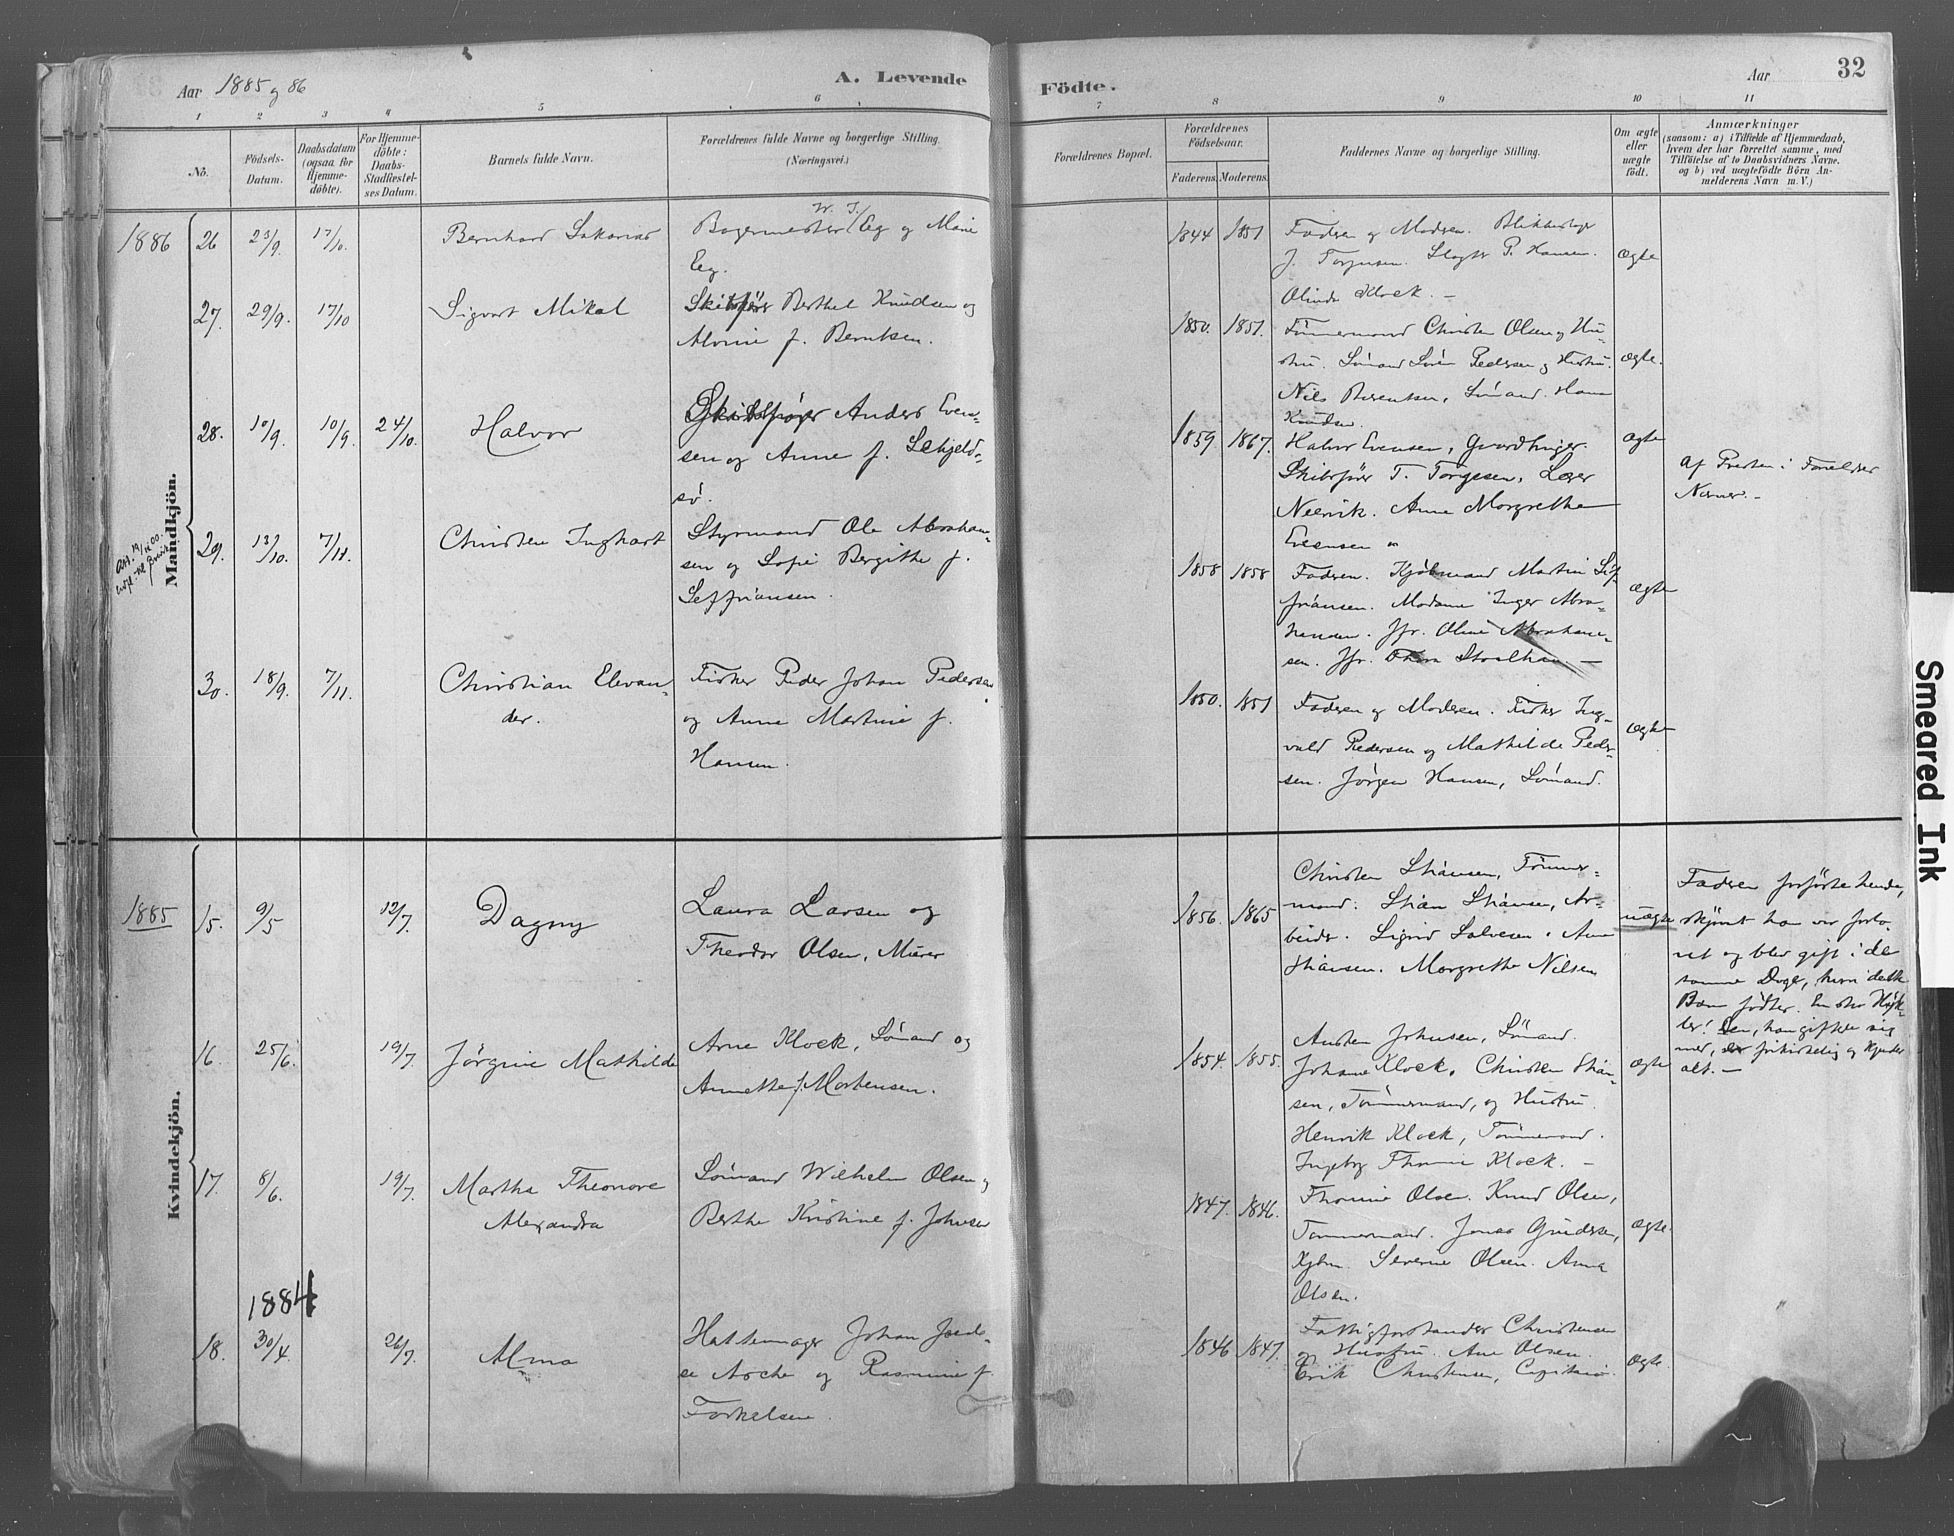 Aar 1885 og 86
A. Levende
Födte.
Aar
32
1 2 3 4 5 6 7 8 9 10 11
No.
Födsels-
Datum.
Daabsdatum
(ogsaa for
Hjemme-
döbte).
For Hjemme-
döbte:
Daabs-
Stadfæstel-
ses Datum.
Barnets fulde Navn.
Forældrenes fulde Navne og borgerlige Stilling.
(Næringsvei.)
Forældrenes Bopæl.
Forældrenes
Födselsaar.
Faderens. Moderens.
Faddernes Navne og borgerlige Stilling.
Om ægte
eller
uægte
födt.
Anmærkninger
(saasom: a) i Tilfælde af Hjemmedaab,
hvem der har forrettet samme, med
Tilföielse af to Daabsvidners Navne.
og b) ved uægtefödte Börn An-
melderens Navn m. V.)
Mandkjön.
1886
26 23/9. 17/10.
Bernhard Sakarias
Bagermester W. T. Eeg og Marie
Eeg.
1844 1851
Faderen og Moderen.
J. Torjusen. Slagter P. Hansen.
Olinde Klock. –
ægte
27. 29/9. 17/10
Sigvart Mikal
Skibsfører Berthel Knudsen og
Alvine f. Berntsen.
1850. 1851.
Tömmermand Christen Olsen og Hu-
stru. Sömand Sören Pedersen og Hustru.
Nils Berentsen, Sömand. Hans
Knudsen.
ægte.
28. 10/9. 10/9. 24/10.
Halvor
Skibsfører Anders Even-
sen og Anne f. Schjelds-
sö.
1859. 1867.
Halvor Evensen, Gaardbruger.
Skibsförer T. Torgesen. Læger
Neervik. Anne Morgrethe
Evensen
ægte
af Presten i Foreldres
Nærver. –
29. 13/10. 7/11.
Christen Inghart
Styrmand Ole Abraham-
sen og Sofie Bergithe f.
Seffriansen.
1858 1858
Faderen. Kjöbmand Martin Sef-
friansen. Madame Inger Abra-
hamsen. Jfr. Oline Abraham-
sen. Jfr. Thora Stoelhan –
ægte
30. 18/9. 7/11.
Christian Elevan-
der.
Fisker Peder Johan Pedersen
og Anne Martine f.
Hansen.
1850. 1851
Faderen og Moderen. Fisker Ing-
vald Pedersen og Mathilde Peder-
sen. Jörgen Hansen, Sömand.
ægte
Kvindekjön.
1885
15. 9/5 12/7.
Dagny
Laura Larsen og
Theodor Olsen, Murer
1856. 1865
Christen Stiansen, Tömmer-
mand. Stian Stiansen, Ar-
beider. Sigrid Salvesen. Anne
Stiansen. Margrethe Nilsen
uægte
Faderen forförte hende,
skjönt han var forlo-
vet og blev gift i de
samme Dage, hvori dette
Barn födtes. En stor Hyk-
ler! Den, han giftede sig
med, er frikirkelig og kjender
alt. –
16. 25/6. 19/7.
Jörgine Mathilde
Arne Klock, Sömand og
Annette f. Mortensen.
1854. 1855.
Austen Johnsen, Sömand.
Johane Klock. Christen Stian-
sen, Tömmermand, og Hustru.
Henrik Klock, Tömmermand.
Ingeborg Thomine Klock. –
ægte
17. 8/6. 19/7.
Martha Theonore
Alexandra
Sömand Wilhelm Olsen og
Berthe Kristine f. Johnsen
1847. 1846.
Thomine Olsen. Knud Olsen,
Tömmermand. Jonas Gundersen,
Kjbm. Severine Olsen. Anna
Olsen.
ægte.
1884
18. 30/4. 26/7.
Alma
Hattemager Johan
Asche og Rasmine f.
Torkelsen.
1846 1847.
Fattigforstander Christensen
og Hustru. Ane Olsen.
Erik Christensen,
ægte.
Smeared Ink